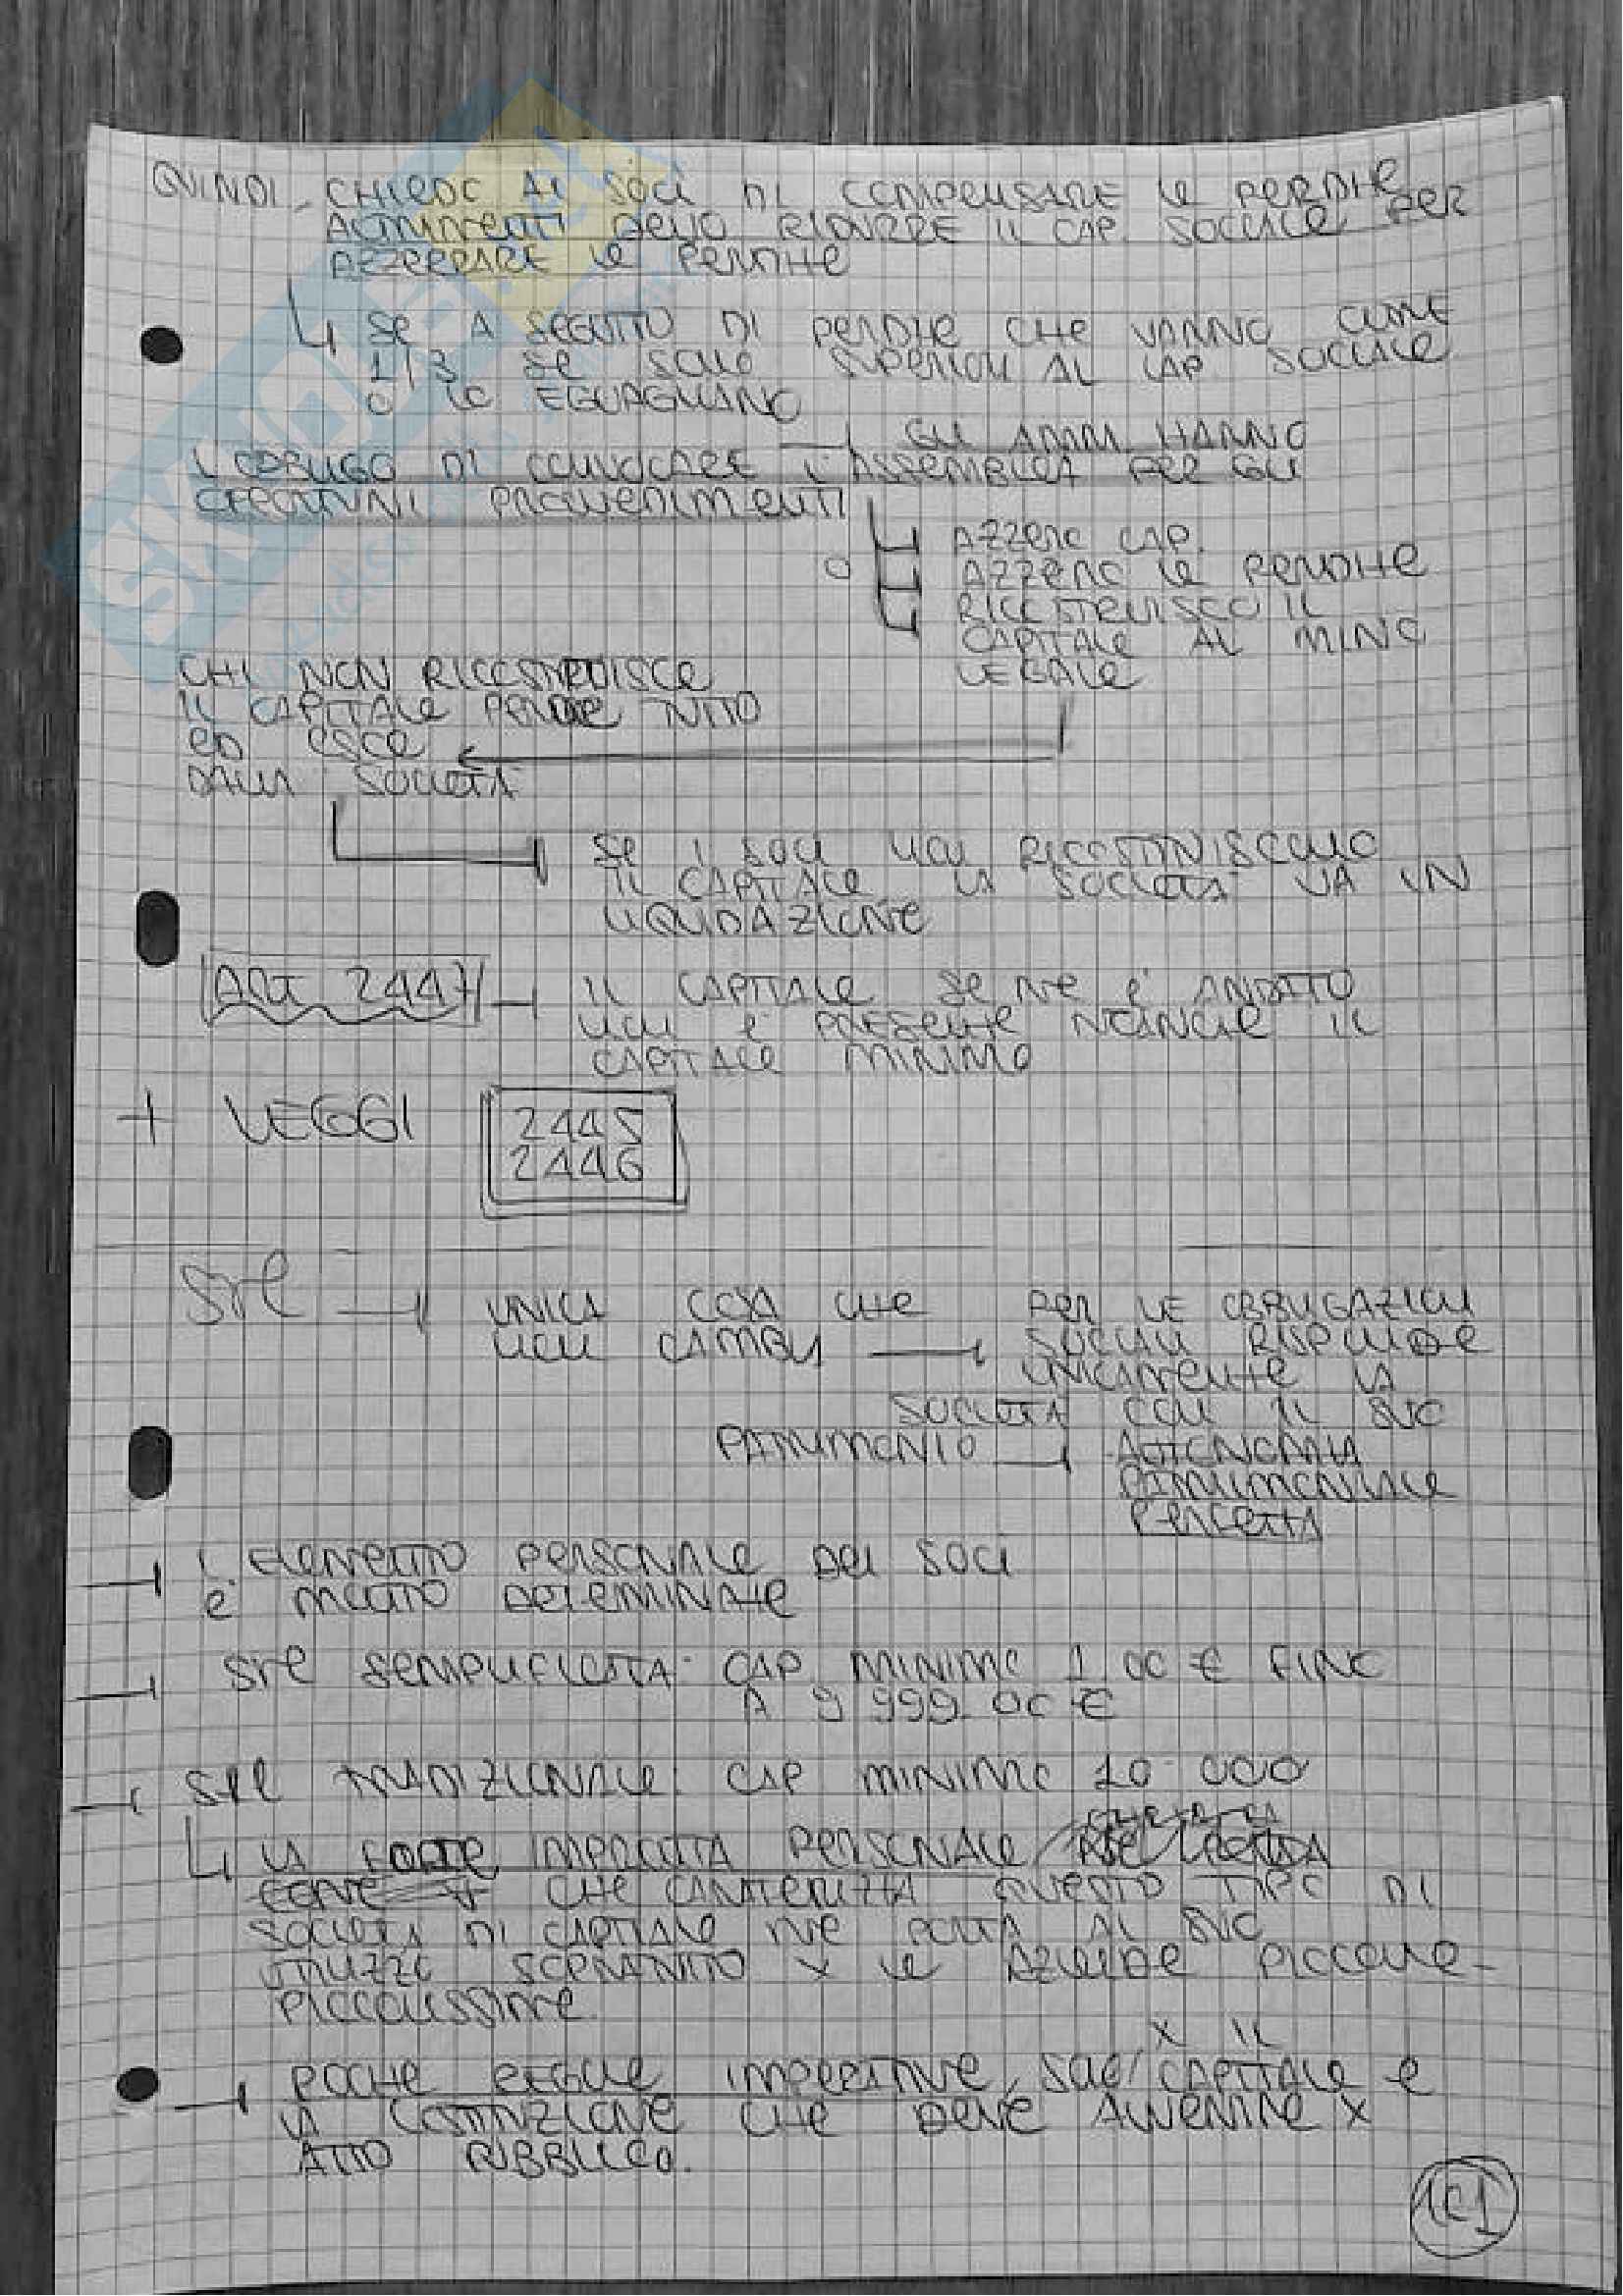 QUINDI - CHIEDO AI SOCI DI COMPENSARE LE PERDITE
ALTRIMENTI DEVO RIDURRE IL CAP. SOCIALE PER
AZZERRARE LE PERDITE
SE A SEGUITO DI PERDITE CHE VANNO OLTRE
1/3 SE SONO SUPERIORI AL CAP SOCIALE
O LO EGUAGLIANO
GLI AMM. HANNO
L'OBBLIGO DI CONVOCARE L'ASSEMBLEA PER GLI
OPPORTUNI PROVVEDIMENTI
AZZERO CAP.
O AZZERO LE PERDITE
RICOSTRUISCO IL
CAPITALE AL MINO
LEGALE
CHI NON RICOSTRUISCE
IL CAPITALE PERDE TUTTO
ED ESCE
DALLA SOCIETÀ
SE I SOCI NON RICOSTRUISCONO
IL CAPITALE LA SOCIETÀ VA IN
LIQUIDAZIONE
ART 2447
IL CAPITALE SE NE È ANDATO
NON È PRESENTE NEANCHE IL
CAPITALE MINIMO
+ LEGGI 2445
2446
Srl UNICA COSA CHE PER LE OBBLIGAZIONI
NON CAMBIA SOCIALI RISPONDE
UNICAMENTE LA
SOCIETÀ CON IL SUO
PATRIMONIO AUTONOMIA
PATRIMONIALE
PERFETTA
L'ELEMENTO PERSONALE DEI SOCI
È MOLTO DETERMINANTE
Srl SEMPLIFICATA: CAP MINIMO 1,00 € FINO
A 9.999,00 €
Srl TRADIZIONALE: CAP MINIMO 10.000
LA FORTE IMPRONTA PERSONALE
CHE CARATTERIZZA QUESTO TIPO DI
SOCIETÀ DI CAPITALE NE PORTA AL SUO
UTILIZZO SOPRATTUTTO X LE AZIENDE PICCOLE-
PICCOLISSIME.
X IL
POCHE REGOLE IMPERATIVE, SOLO CAPITALE E
LA COSTITUZIONE CHE DEVE AVVENIRE X
ATTO PUBBLICO.
101